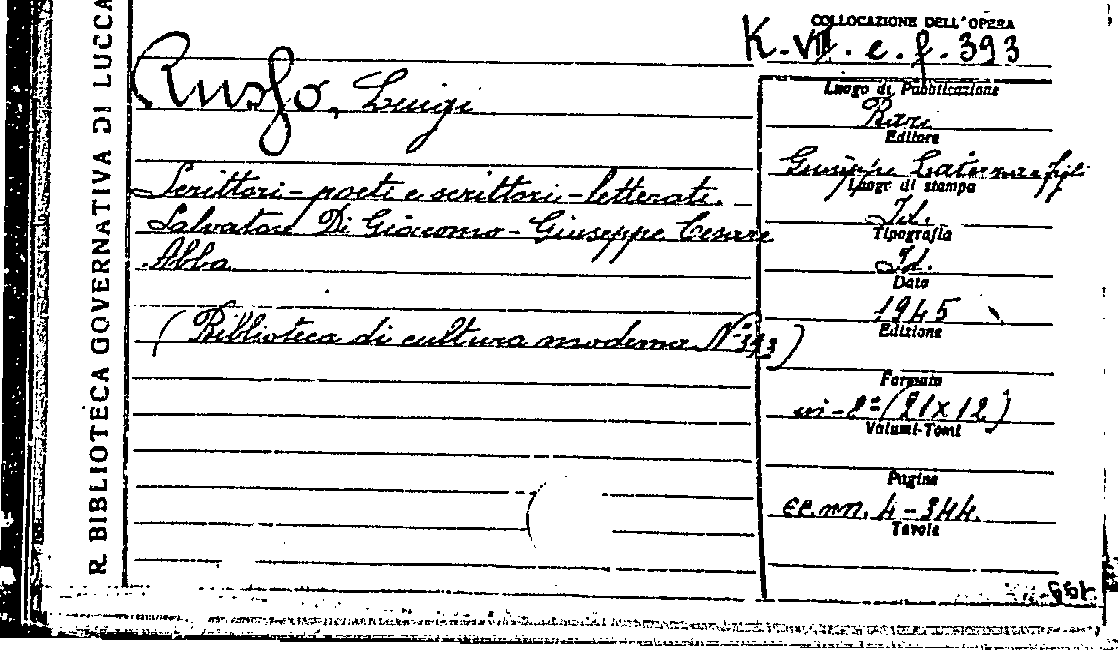 R. BIBLIOTECA GOVERNATIVA DI LUCCA
COLLOCAZIONE DELL'OPERA
K. VII. e. f. 393
Russo, Luigi
Scrittori-poeti e scrittori-letterati.
Salvatore Di Giacomo - Giuseppe Cesare
Abba
(Biblioteca di cultura moderna N° 393)
Luogo di Pubblicazione
Bari
Editore
Giuseppe Laterza e figli
Luogo di stampa
Id.
Tipografia
Id.
Data
1945
Edizione
Formato
in-8° (21x12)
Volumi-Tomi
Pagine
cc. nn. 4-344.
Tavole